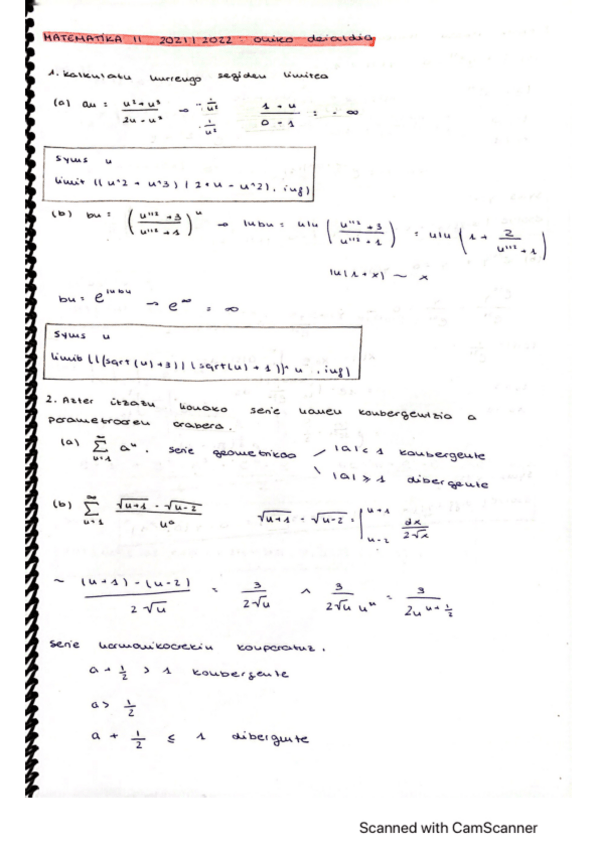 MATEMATIKA II 2021 | 2022 : ohiko deialdia
1. Kalkulatu hurrengo segiden limitea
(a) an : (n² + n³) / (2n - n²) → · 1/n² / · 1/n² (1 + n) / (0 - 1) = - ∞
syms n
limit ((n^2 + n^3) / (2*n - n^2), inf)
(b) bn : ((n^1/2 + 3) / (n^1/2 + 1))^n → ln bn = n ln ((n^1/2 + 3) / (n^1/2 + 1)) = n ln (1 + 2 / (n^1/2 + 1))
ln(1+x) ~ x
bn = e^(ln bn) → e^∞ = ∞
syms n
limit (((sqrt(n)+3) / (sqrt(n)+1))^n, inf)
2. Azter itzazu honako serie hauen konbergentzia a
parametroaren arabera.
(a) ∞ Σ n=1 a^n . serie geometrikoa / |a| < 1 konbergente
\ |a| ≥ 1 dibergente
(b) ∞ Σ n=1 (√(n+1) - √(n-2)) / n^a √(n+1) - √(n-2) = ∫ n+1 n-2 dx / 2√x
~ ((n+1) - (n-2)) / (2√n) = 3 / (2√n) ^ 3 / (2√n n^a) = 3 / (2n^(a + 1/2))
serie harmonikoarekin konparatuz.
a + 1/2 > 1 konbergente
a > 1/2
a + 1/2 ≤ 1 dibergente
Scanned with CamScanner